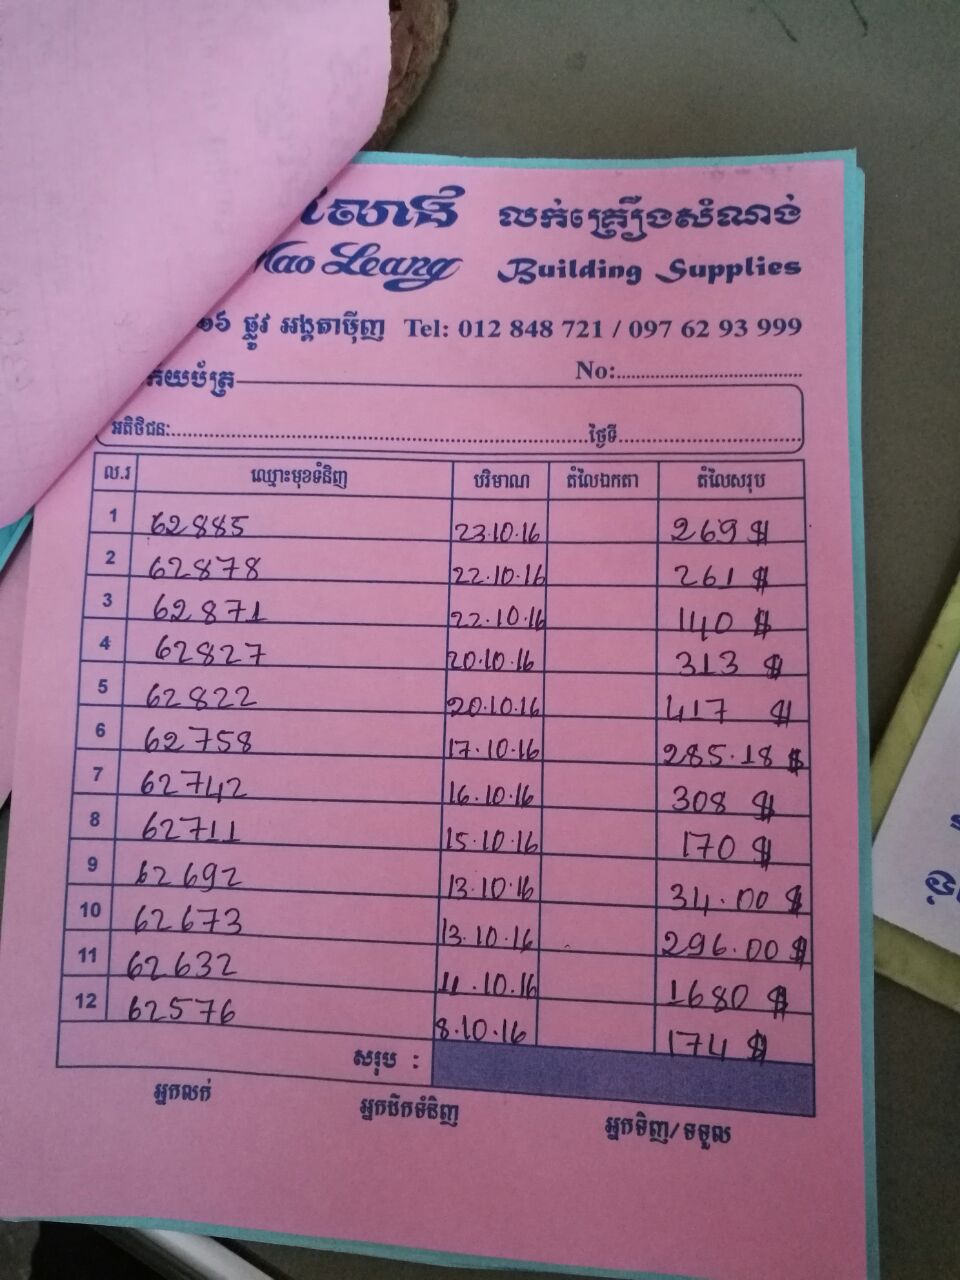 លក់គ្រឿងសំណង់
Leang Building Supplies
ផ្លូវ អង្គតាម៉ិញ Tel: 012 848 721 / 097 62 93 999
No:
អតិថិជន: ថ្ងៃទី
ល.រ ឈ្មោះមុខទំនិញ បរិមាណ តំលៃឯកតា តំលៃសរុប
1 62885 23.10.16 269 $
2 62878 22.10.16 261 $
3 62871 22.10.16 140 $
4 62827 20.10.16 313 $
5 62822 20.10.16 417 $
6 62758 17.10.16 285.18 $
7 62742 16.10.16 308 $
8 62711 15.10.16 170 $
9 62692 13.10.16 34.00 $
10 62673 13.10.16 296.00 $
11 62632 11.10.16 1680 $
12 62576 8.10.16 174 $
សរុប :
អ្នកលក់ អ្នកដឹកទំនិញ អ្នកទិញ/ទទួល